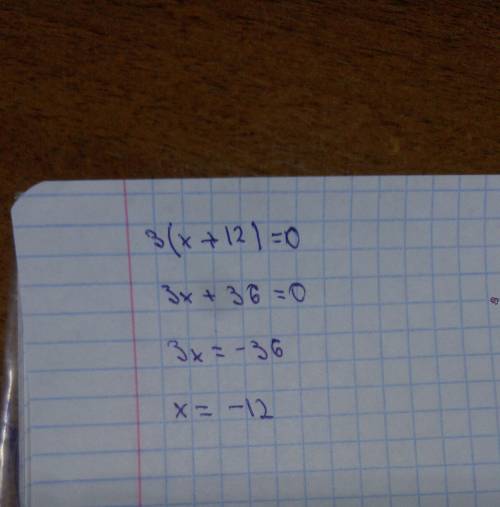 3(x+12)=0
3x+36=0
3x=-36
x=-12